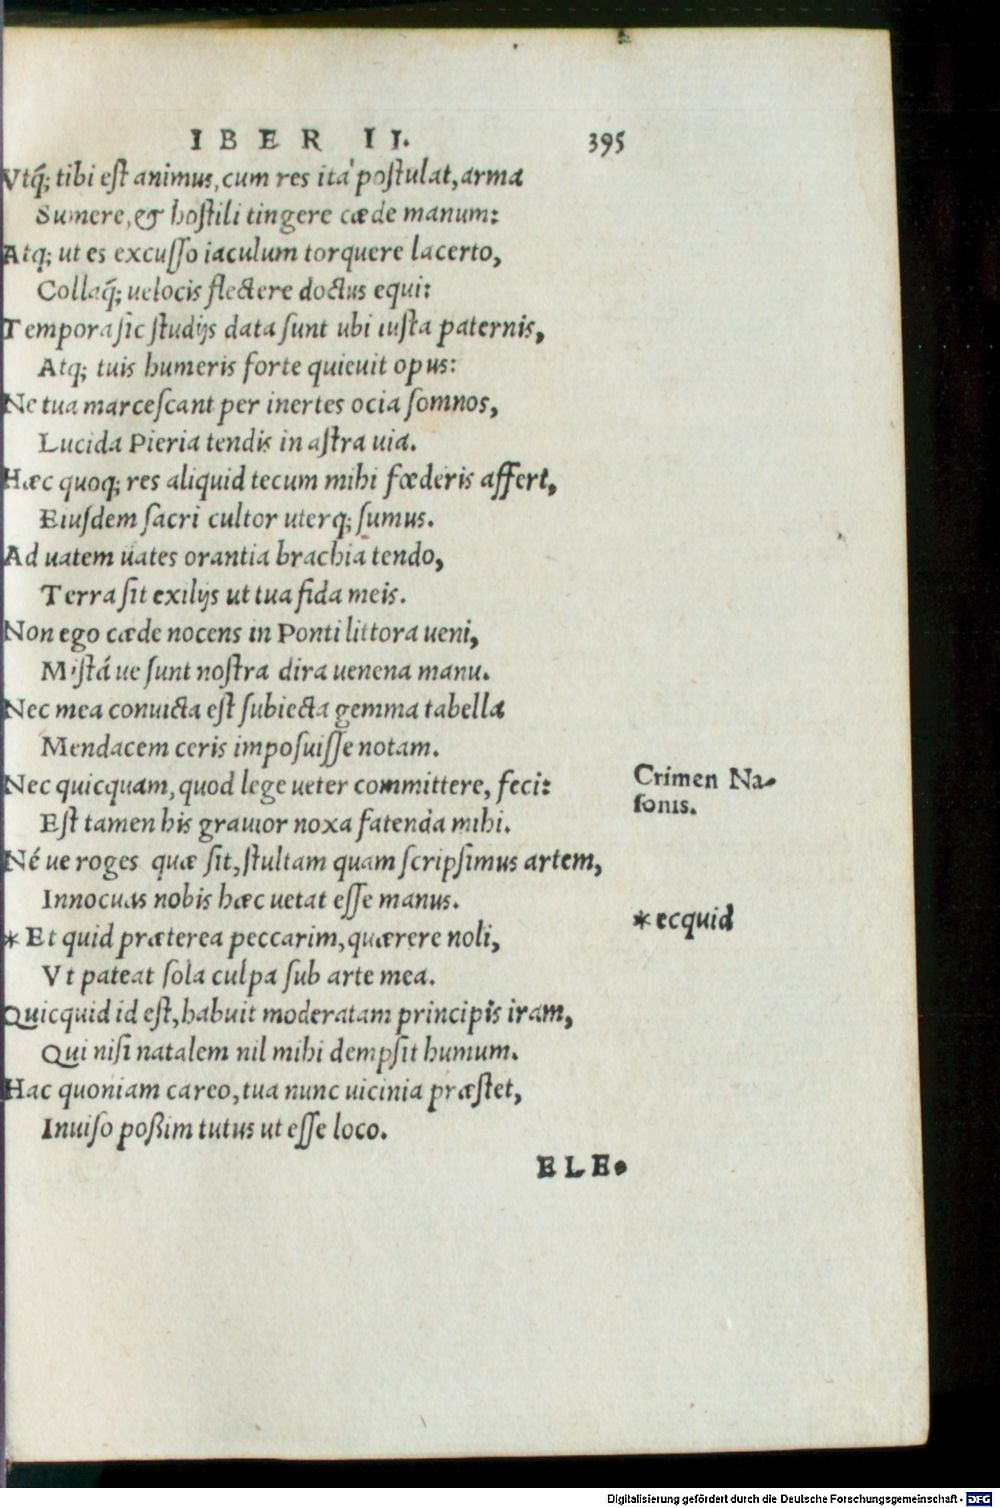 IBER II. 395
Vtq̃; tibi est animus, cum res ita postulat, arma
Sumere, & hostili tingere cæde manum:
Atq; ut es excusso iaculum torquere lacerto,
Collaq̃; uelocis flectere doctus equi:
Tempora sic studijs data sunt ubi iusta paternis,
Atq; tuis humeris forte quieuit opus:
Ne tua marcescant per inertes ocia somnos,
Lucida Pieria tendis in astra uia.
Hæc quoq; res aliquid tecum mihi fœderis affert,
Eiusdem sacri cultor uterq; sumus.
Ad uatem uates orantia brachia tendo,
Terra sit exilijs ut tua fida meis.
Non ego cæde nocens in Ponti littora ueni,
Mistá ue sunt nostra dira uenena manu.
Nec mea conuicta est subiecta gemma tabella
Mendacem ceris imposuisse notam.
Nec quicquam, quod lege ueter committere, feci:
Est tamen his grauior noxa fatenda mihi.
Né ue roges quæ sit, stultam quam scripsimus artem,
Innocuas nobis hæc uetat esse manus.
* Et quid præterea peccarim, quærere noli,
Vt pateat sola culpa sub arte mea.
Quicquid id est, habuit moderatam principis iram,
Qui nisi natalem nil mihi dempsit humum.
Hac quoniam careo, tua nunc uicinia præstet,
Inuiso poßim tutus ut esse loco.
ELE.
Crimen Na-
sonis.
* ecquid
Digitalisierung gefördert durch die Deutsche Forschungsgemeinschaft - DFG